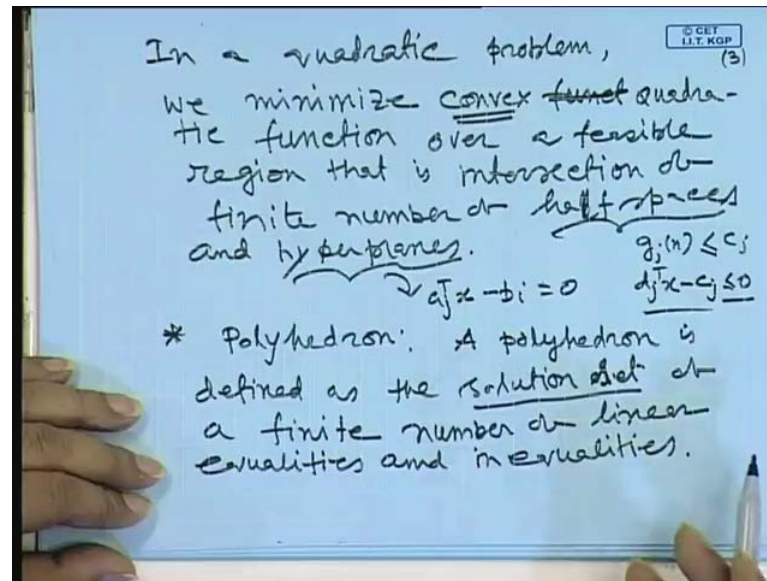 © CET
I.I.T. KGP
(3)
In a quadratic problem,
we minimize convex funct quadra-
tic function over a feasible
region that is intersection of
finite number of half spaces
and hyperplanes.
g_j(x) ≤ c_j
a_i^T x - b_i = 0
d_j^T x - c_j ≤ 0
* Polyhedron: A polyhedron is
defined as the solution set of
a finite number of linear
equalities and inequalities.